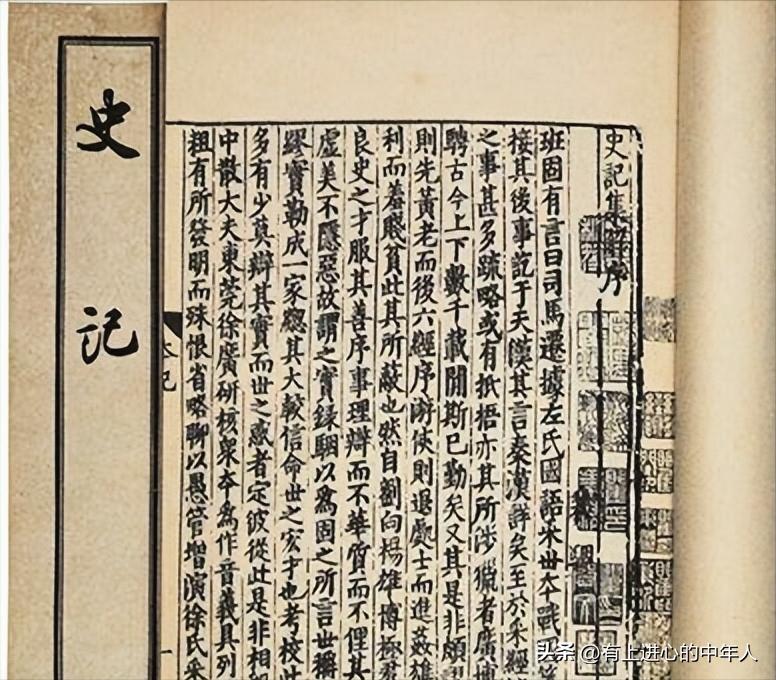 史記
史記集解序
班固有言曰司馬遷據左氏國語采丗本戰國
接其後事訖于天漢其言秦漢詳矣至於采經
之事甚多疏略或有抵捂亦其所涉獵者廣博
騁古今上下數千載閒斯已勤矣又其是非頗
則先黃老而後六經序游俠則退處士而進姦雄
利而羞賤貧此其所蔽也然自劉向楊雄博極羣
良史之才服其善序事理辯而不華質而不俚其
虛美不隱惡故謂之實録駰以爲固之所言世稱
繆實勒成一家緫其大較信命世之宏才也考校此
多有少莫辯其實而世之惑者定彼從此是非相
中散大夫東莞徐廣研核衆夲爲作音義具列
粗有所發明而殊恨省略聊以愚管增演徐氏采
夲紀
头条 @有上进心的中年人